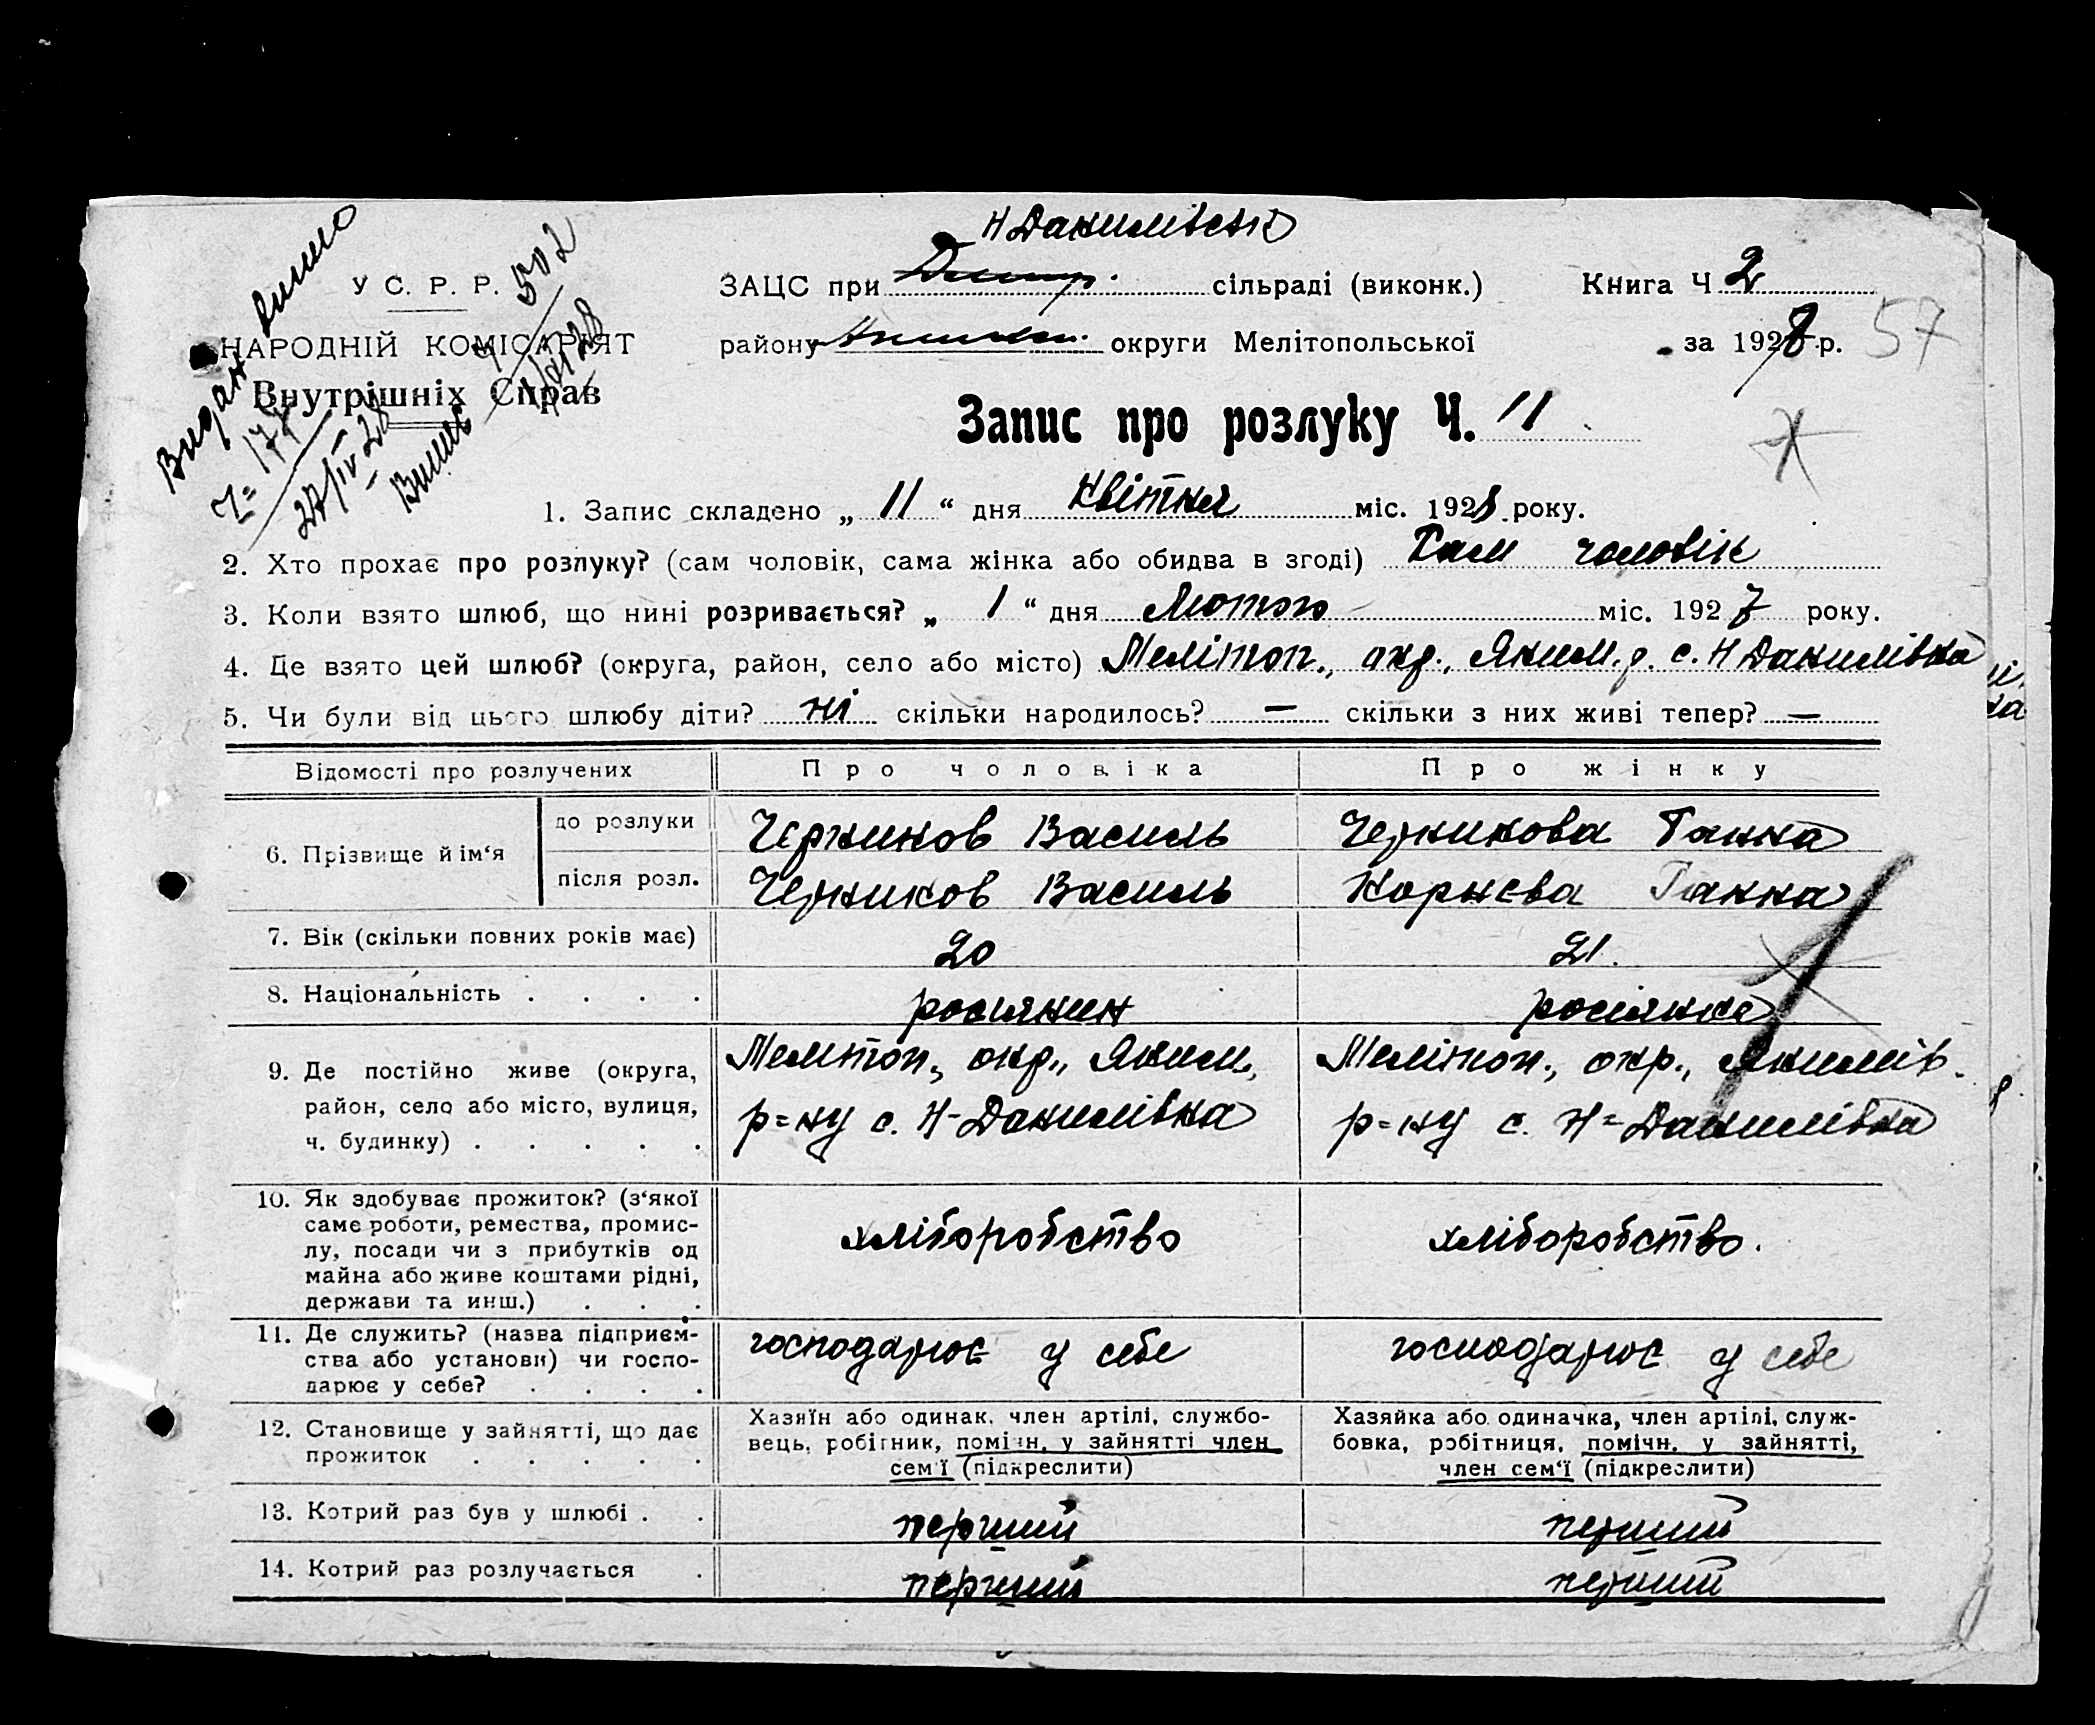 Н Данилівськ
У С. Р. Р.
НАРОДНІЙ КОМІСАРІЯТ
Внутрішніх Справ
Видан
Ч= 177
27/IV-28
502
ЗАЦС при сільраді (виконк.)
Книга Ч 2
району округи Мелітопольської
за 1928 р.
57
Запис про розлуку Ч. 11
1. Запис складено „ 11 “ дня Квітня міс. 1928 року.
2. Хто прохає про розлуку? (сам чоловік, сама жінка або обидва в згоді) Сам чоловік
3. Коли взято шлюб, що нині розривається? „ 1 “ дня Лютого міс. 1927 року.
4. Де взято цей шлюб? (округа, район, село або місто) Мелітоп., окр., Яким. р. с. Н Данилівка
5. Чи були від цього шлюбу діти? ні скільки народилось? — скільки з них живі тепер? —
Відомості про розлучених
Про чоловіка
Про жінку
6. Прізвище й ім‘я
до розлуки
Черников Василь
Черникова Ганна
після розл.
Черников Василь
Корнєва Ганна
7. Вік (скільки повних років має)
20
21.
8. Національність . . . .
росиянин
росіянка
9. Де постійно живе (округа,
район, село або місто, вулиця,
ч. будинку) . . . . .
Мелітоп., окр., Яким.,
р=ну с. Н-Данилівка
Мелітоп., окр., Якимів.
р=ну с. Н=Данилівка
10. Як здобуває прожиток? (з‘якої
саме роботи, ремества, промис-
лу, посади чи з прибутків од
майна або живе коштами рідні,
держави та инш.) . . .
хліборобство
хліборобство.
11. Де служить? (назва підприєм-
ства або установи) чи госпо-
дарює у себе? . . . .
господарює у себе
господарює у себе
12. Становище у зайнятті, що дає
прожиток . . . . .
Хазяїн або одинак, член артілі, службо-
вець, робітник, помічн. у зайнятті член
сем‘ї (підкреслити)
Хазяйка або одиначка, член артілі, служ-
бовка, робітниця, помічн. у зайнятті,
член сем‘ї (підкреслити)
13. Котрий раз був у шлюбі . .
перший
перший
14. Котрий раз розлучається .
перший
перший